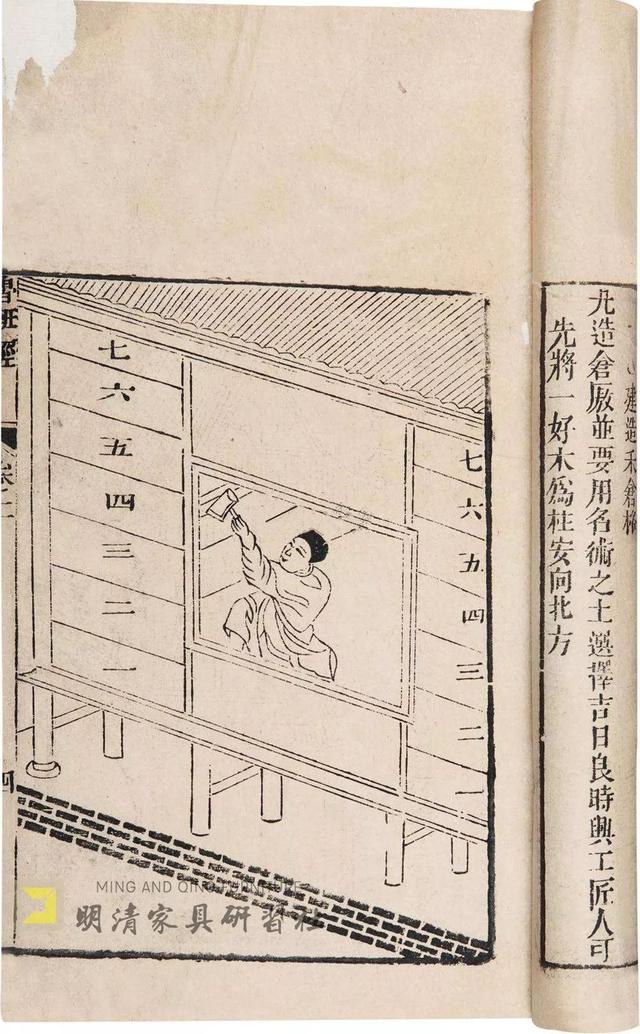 建造禾倉格
凢造倉厫並要用名術之士選擇吉日良時興工匠人可
先將一好木爲柱安向北方
七
六
五
四
三
二
一
七
六
五
四
三
二
一
魯班經
卷之二
四
MING AND QING FURNITURE
明清家具研習社